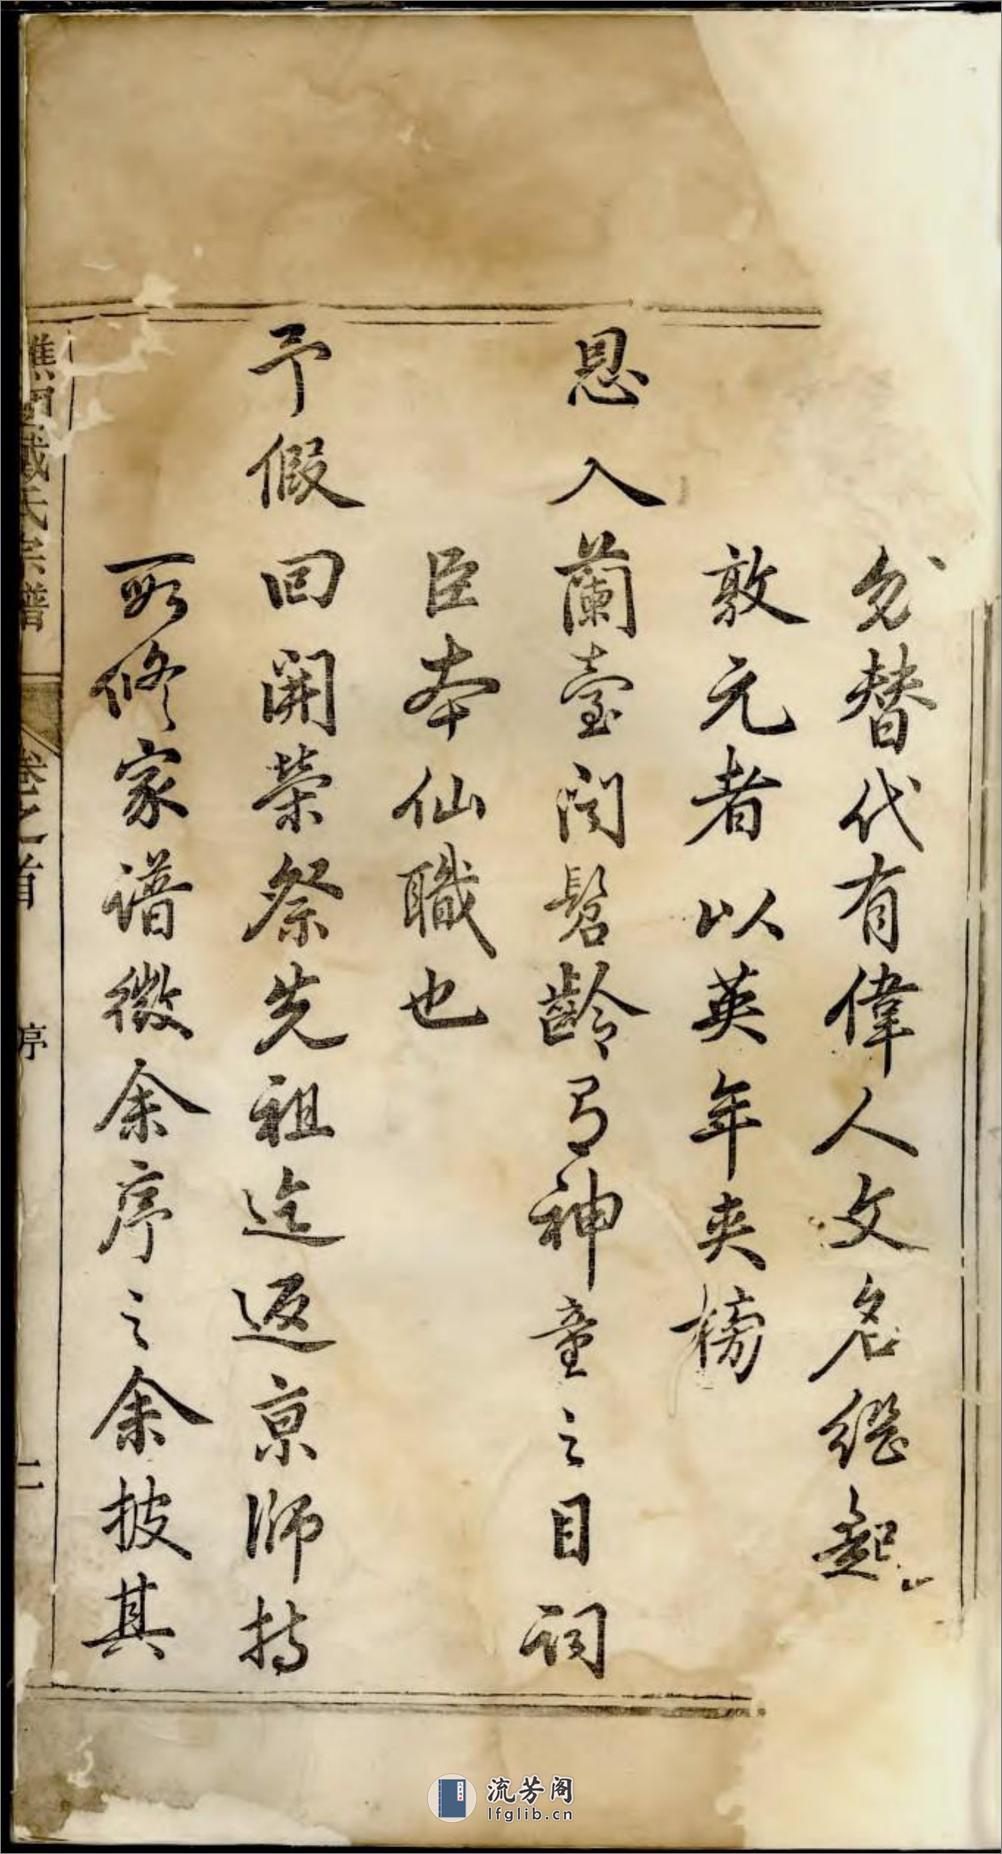 勿替代有偉人文名繼起
敦元者以英年夾榜
恩入蘭臺閲髫齡有神童之目詞
臣本仙職也
予假回開榮祭先祖迄返京師持
所修家譜徵余序之余披其
戴氏宗譜
卷之首
序
二
流芳阁
lfglib.cn